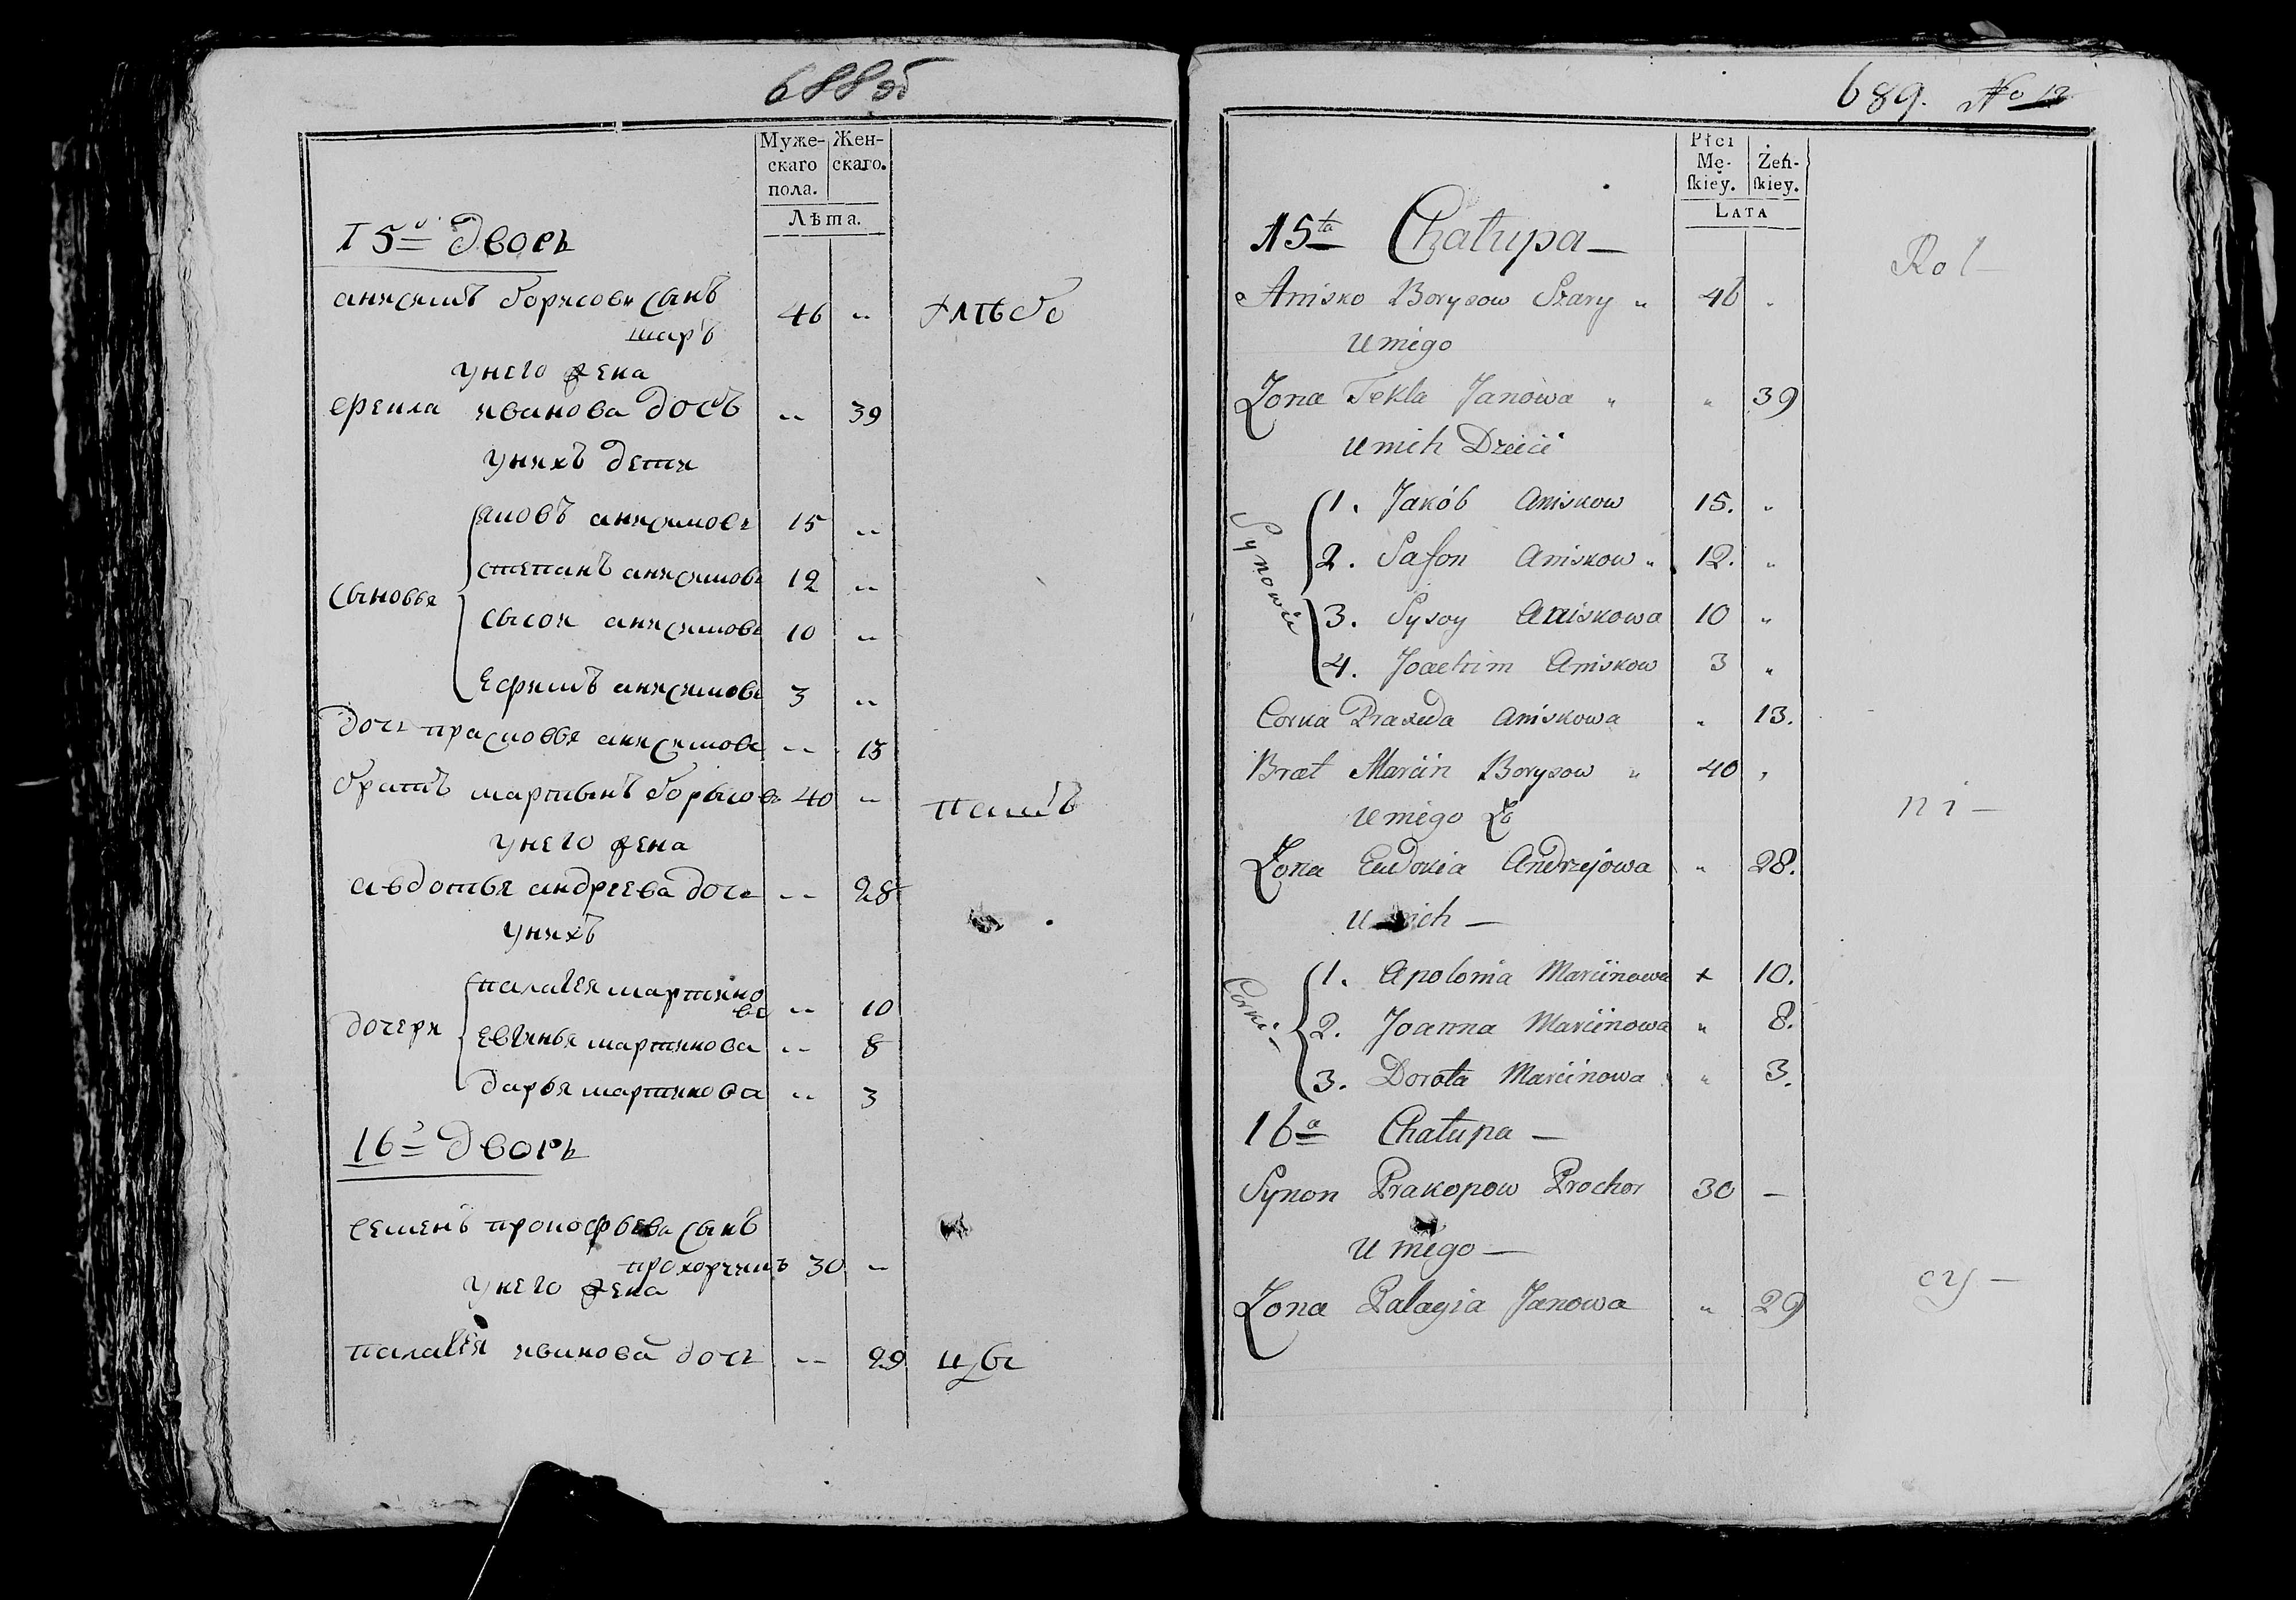 688 об
Муже- Жен-
скаго скаго.
пола.
Лѣта.
15й дворъ
анисимъ борисовъ сынъ 46 „ хлѣбо
шаръ
унего жена
Фекла иванова дочь „ 39
унихъ дети
сыновья
яковъ анисимовъ 15 „
степанъ анисимовъ 12 „
сысои анисимовъ 10 „
Ефимъ анисимовъ 3 „
дочь прасковья анисимова „ 13
братъ мартынъ борисовъ 40 „ пашъ
унего жена
авдотья андреева дочь „ 28
унихъ
дочери
палагея мартино „ 10
ва
Евгинья мартинова „ 8
дарья мартинова „ 3
16й дворъ
семенъ прокофьевъ сынъ
прохорчикъ 30 „
унего жена
палагея иванова дочь „ 29 цы
689. No 12
Płci
Mę- Żeń-
ſkiéy. ſkiey.
LATA
15ta Chałupa —
Anisko Borysow Szary „ 46 „ Rol —
u niego
Żona Tekla Janowa „ „ 39
u nich Dzieci
Synowie
1. Jakób Aniskow 15. „
2. Safon Aniskow „ 12. „
3. Sysoy Aniskowa 10 „
4. Joachim Aniskow 3 „
Corka Praxeda Aniskowa „ 13.
Brat Marcin Borysow „ 40 „
u niego Żo ni —
Żona Eudokia Andrzejowa „ 28.
u nich —
Corki
1. Apolonia Marcinowa x 10.
2. Joanna Marcinowa „ 8.
3. Dorota Marcinowa „ 3.
16a Chałupa —
Symon Prakopow Prochor 30 —
u niego — cy —
Żona Palagia Janowa „ 29